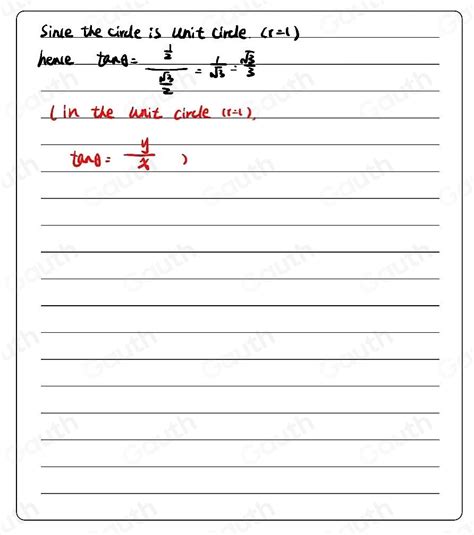 Since the circle is unit circle (r=1)
hence tanθ = \frac{\frac{1}{2}}{\frac{\sqrt{3}}{2}} = \frac{1}{\sqrt{3}} = \frac{\sqrt{3}}{3}
(in the unit circle (r=1),
tanθ = \frac{y}{x} )
Gauth